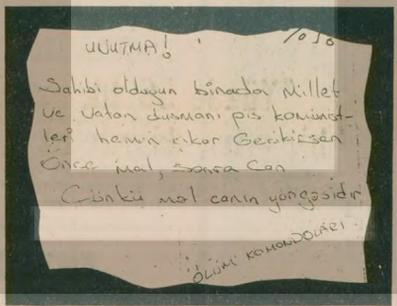 UNUTMA!
Sahibi olduğun binada Millet
ve vatan düşmanı pis komünist-
leri hemin çıkar Gerikirsan
Önce mal, sonra Can
Çünkü mal canın yongasıdır
ÖLÜM KOMONDOLARI